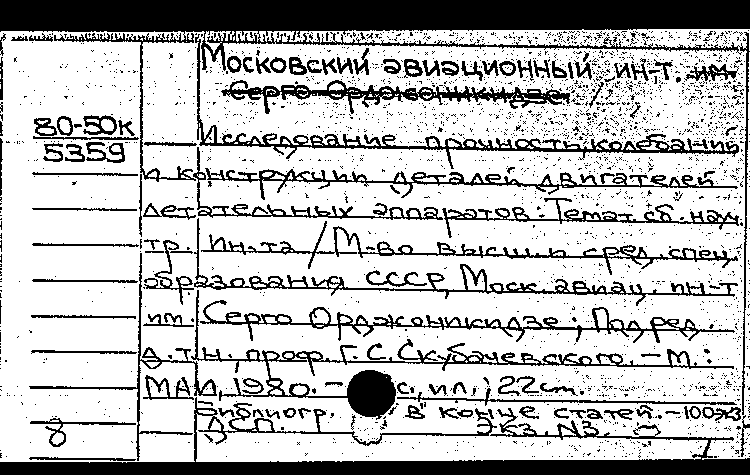 Московский авиационный ин-т. им.
Серго Орджоникидзе
80-50к
5359
Исследование прочности, колебаний
и конструкции деталей двигателей
летательных аппаратов: Темат. сб. науч.
тр. ин-та / М-во высш. и сред. спец.
образования СССР, Моск. авиац. ин-т
им. Серго Орджоникидзе; Под ред.
д.т.н., проф. Г.С. Скубачевского. – М.:
МАИ, 1980. – с., ил.; 22 см.
Библиогр. в конце статей. – 100 экз
ДСП. Экз. №3.
8
1